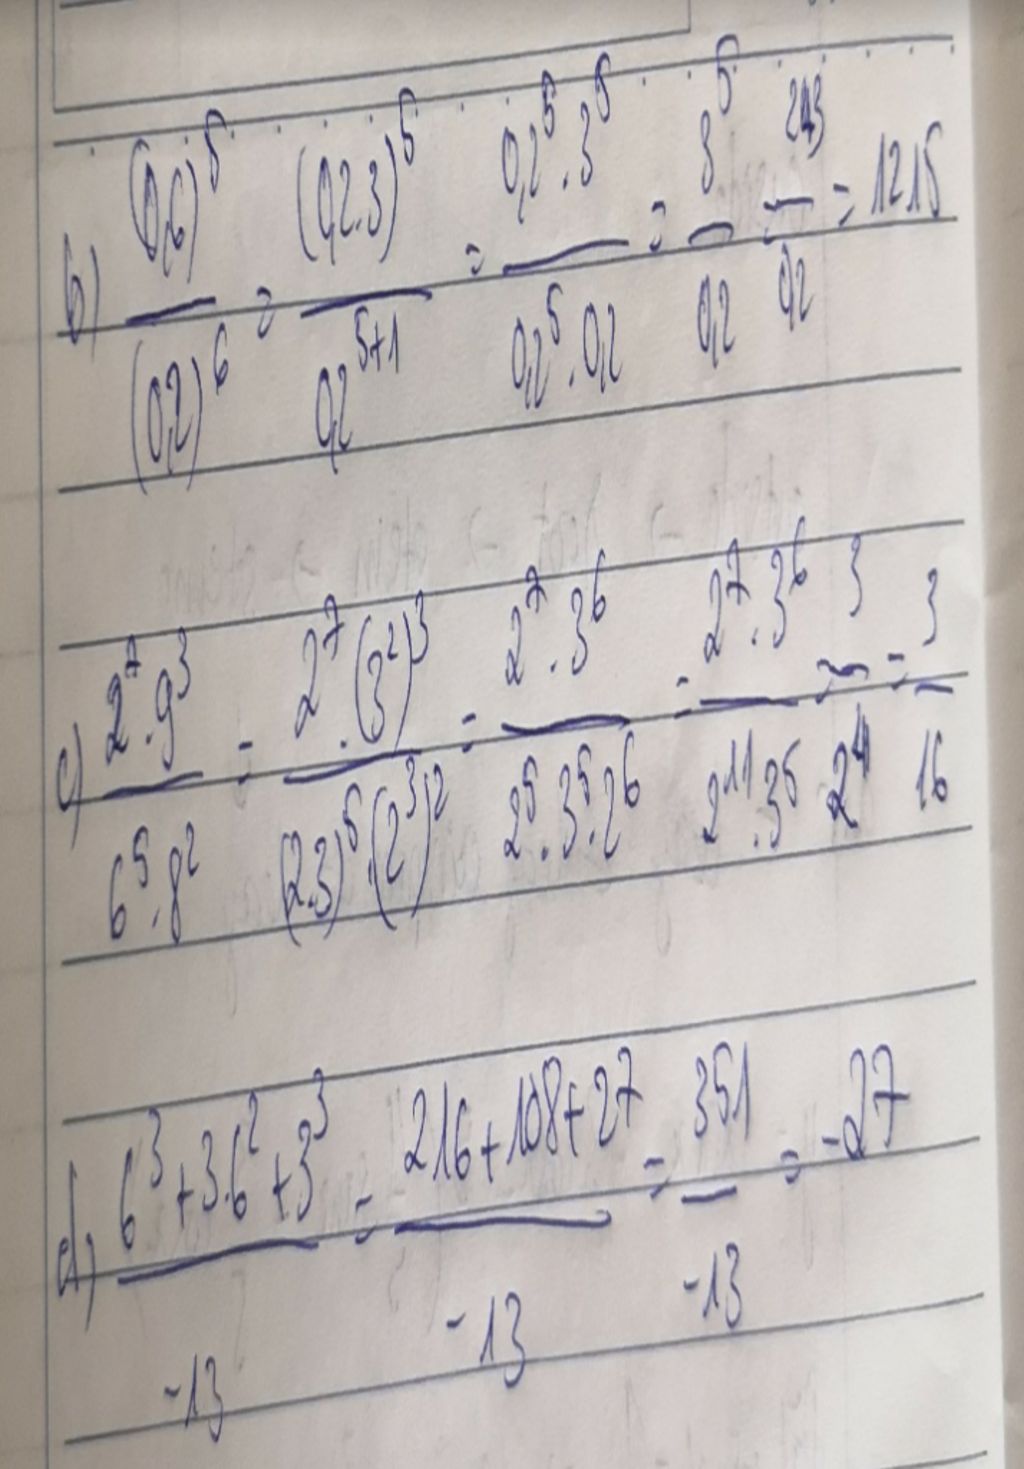 b) (0,6)^5 / (0,2)^6 = (0,2.3)^5 / 0,2^(5+1) = 0,2^5 . 3^5 / 0,2^5 . 0,2 = 3^5 / 0,2 = 243 / 0,2 = 1215
c) 2^7 . 9^3 / 6^5 . 8^2 = 2^7 . (3^2)^3 / (2.3)^5 . (2^3)^2 = 2^7 . 3^6 / 2^5 . 3^5 . 2^6 = 2^7 . 3^6 / 2^11 . 3^5 = 3 / 2^4 = 3 / 16
d) 6^3 + 3.6^2 + 3^3 / -13 = 216 + 108 + 27 / -13 = 351 / -13 = -27